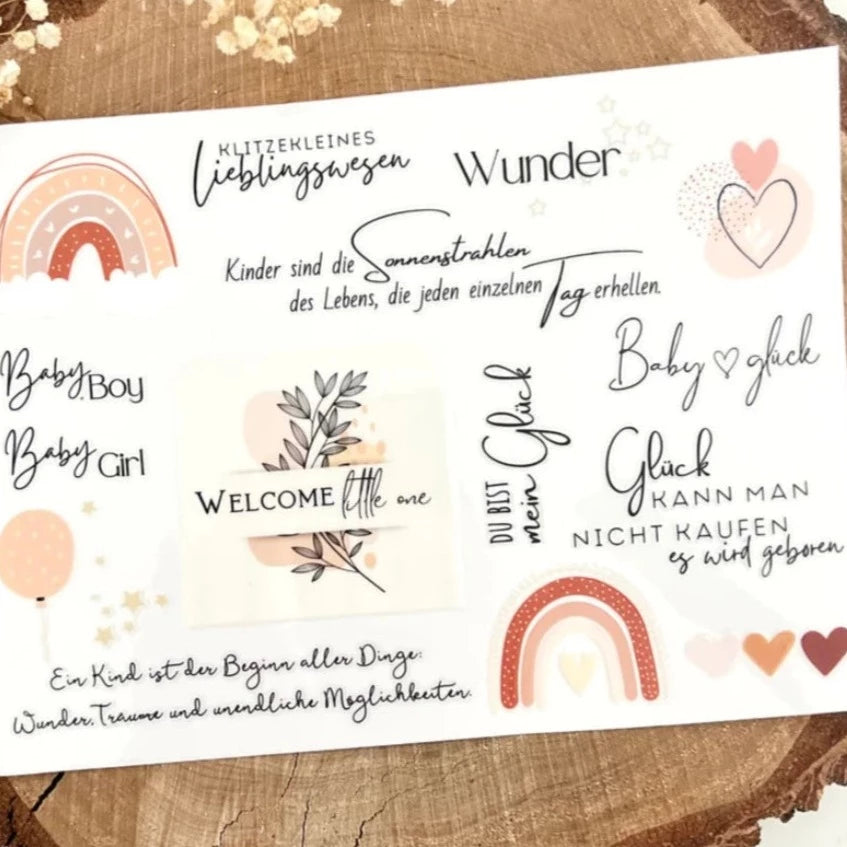 KLITZEKLEINES
Lieblingswesen
Wunder
Kinder sind die Sonnenstrahlen
des Lebens, die jeden einzelnen Tag erhellen.
Baby Boy
Baby Girl
WELCOME little one
DU BIST
mein Glück
Baby glück
Glück
KANN MAN
NICHT KAUFEN
es wird geboren
Ein Kind ist der Beginn aller Dinge:
Wunder, Träume und unendliche Möglichkeiten.